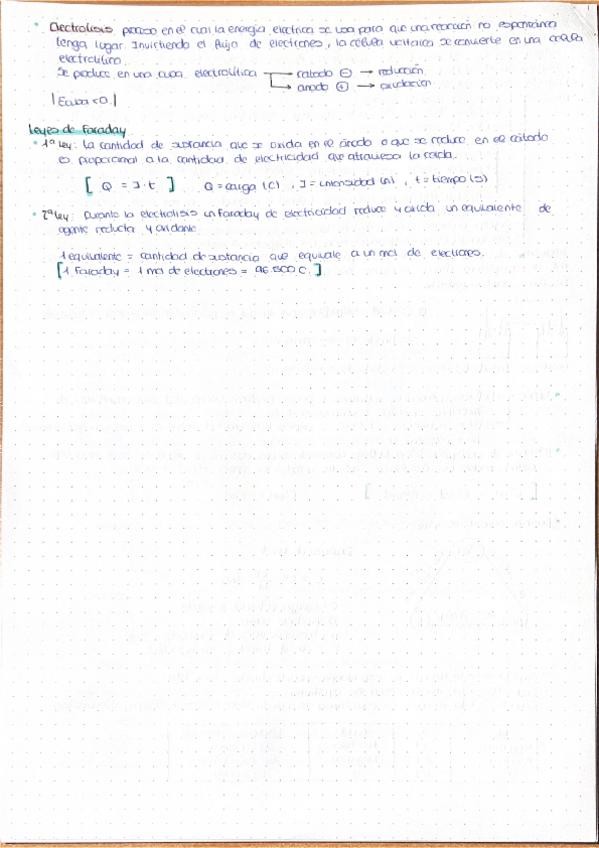 · Electrolisis: proceso en el cual la energía electrica se usa para que una reacción no espontánea
tenga lugar. Invirtiendo el flujo de electrones, la célula voltaica se convierte en una celda
electrolítica.
Se produce en una cuba electrolítica → catodo ⊖ → reducción
→ anodo ⊕ → oxidación
| Ecuba < 0. |
Leyes de Faraday
· 1ª ley: La cantidad de sustancia que se oxida en el ánodo o que se reduce en el cátodo
es proporcional a la cantidad de electricidad que atraviesa la celda.
[ Q = I · t ] Q = carga (C), I = intensidad (A), t = tiempo (s)
· 2ª ley: Durante la electrolisis un Faraday de electricidad reduce y oxida un equivalente de
agente reductor y oxidante.
1 equivalente = cantidad de sustancia que equivale a un mol de electrones.
[ 1 Faraday = 1 mol de electrones = 96 500 C. ]